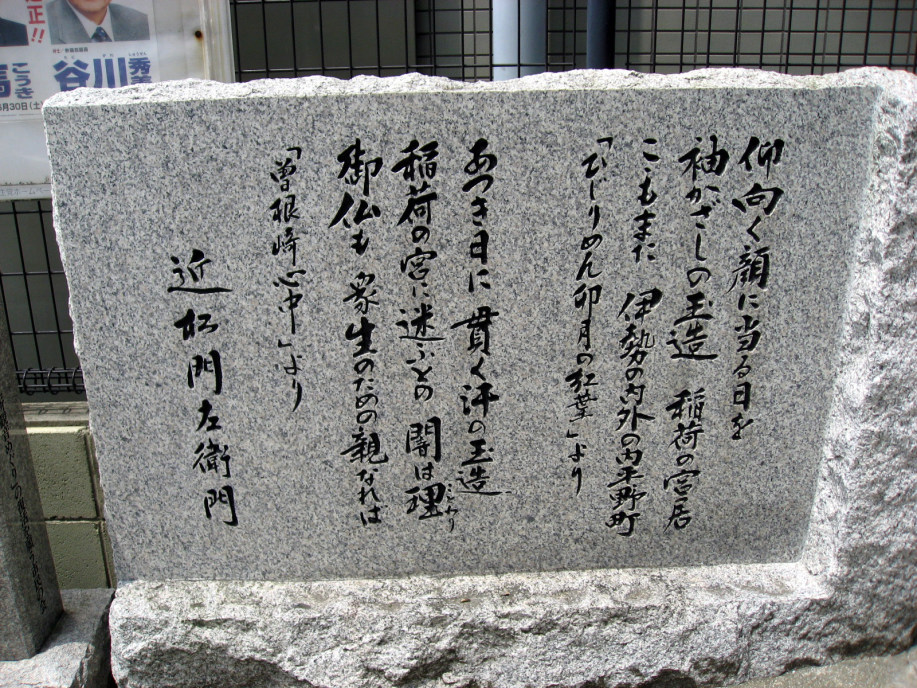 仰向く顔に当る日を
袖かざしの玉造　稲荷の宮居
こもまた　伊勢の内外の内平野町
「ひじりめん卯月の紅葉」より
あつき日に貫く汗の玉造
稲荷の宮に迷ふとの　闇は理
ことわり
御仏も　衆生のための親なれば
「曽根崎心中」より
近松門左衛門
谷川秀
こうき
月30日(土